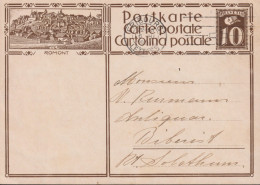 Postkarte
Carte postale
Cartolina postale
HELVETIA
10
ROMONT
Monsieur
Antiquar
Biberist
Kt. Solothurn